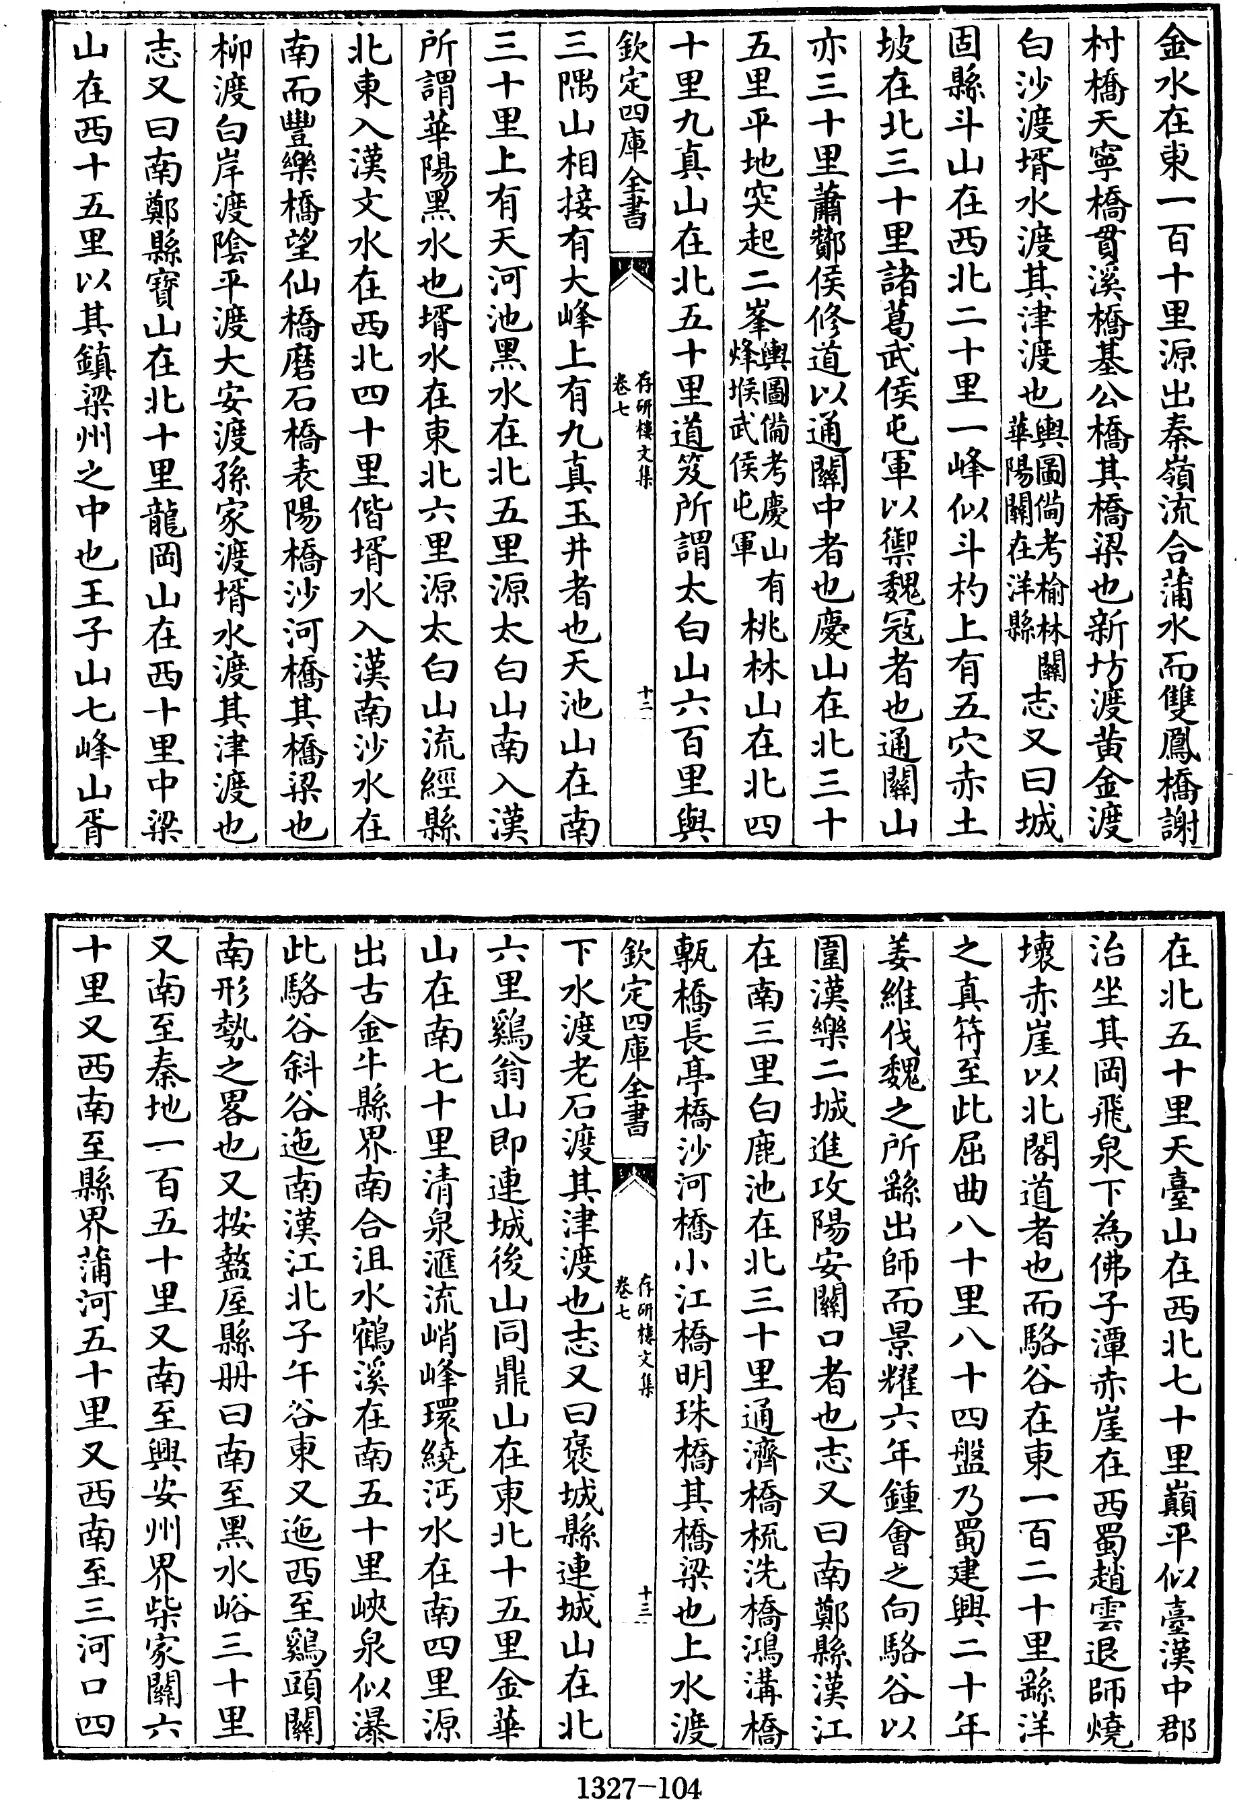 金水在東一百十里源出秦嶺流合蒲水而雙鳳橋謝
村橋天寧橋貫溪橋基公橋其橋梁也新坊渡黄金渡
白沙渡壻水渡其津渡也輿圖備考榆林關
華陽關在洋縣志又曰城
固縣斗山在西北二十里一峰似斗杓上有五穴赤土
坡在北三十里諸葛武侯屯軍以禦魏冦者也通關山
亦三十里蕭酇侯修道以通關中者也慶山在北三十
五里平地突起二峯輿圖備考慶山有
烽堠武侯屯軍桃林山在北四
十里九真山在北五十里道笈所謂太白山六百里與
欽定四庫全書
存研樓文集
卷七
十二
三隅山相接有大峰上有九真玉井者也天池山在南
三十里上有天河池黑水在北五里源太白山南入漢
所謂華陽黑水也壻水在東北六里源太白山流經縣
北東入漢文水在西北四十里偕壻水入漢南沙水在
南而豐樂橋望仙橋磨石橋表陽橋沙河橋其橋梁也
柳渡白岸渡陰平渡大安渡孫家渡壻水渡其津渡也
志又曰南鄭縣寶山在北十里龍岡山在西十里中梁
山在西十五里以其鎮梁州之中也王子山七峰山胥
在北五十里天臺山在西北七十里巔平似臺漢中郡
治坐其岡飛泉下為佛子潭赤崖在西蜀趙雲退師燒
壞赤崖以北閣道者也而駱谷在東一百二十里繇洋
之真符至此屈曲八十里八十四盤乃蜀建興二十年
姜維伐魏之所繇出師而景耀六年鍾會之向駱谷以
圍漢樂二城進攻陽安關口者也志又曰南鄭縣漢江
在南三里白鹿池在北三十里通濟橋梳洗橋鴻溝橋
甎橋長亭橋沙河橋小江橋明珠橋其橋梁也上水渡
欽定四庫全書
存研樓文集
卷七
十三
下水渡老石渡其津渡也志又曰褒城縣連城山在北
六里鷄翁山即連城後山同鼎山在東北十五里金華
山在南七十里清泉滙流峭峰環繞沔水在南四里源
出古金牛縣界南合沮水鶴溪在南五十里峽泉似瀑
此駱谷斜谷迤南漢江北子午谷東又迤西至鷄頭關
南形勢之畧也又按盩厔縣册曰南至黑水峪三十里
又南至秦地一百五十里又南至興安州界柴家關六
十里又西南至縣界蒲河五十里又西南至三河口四
1327-104